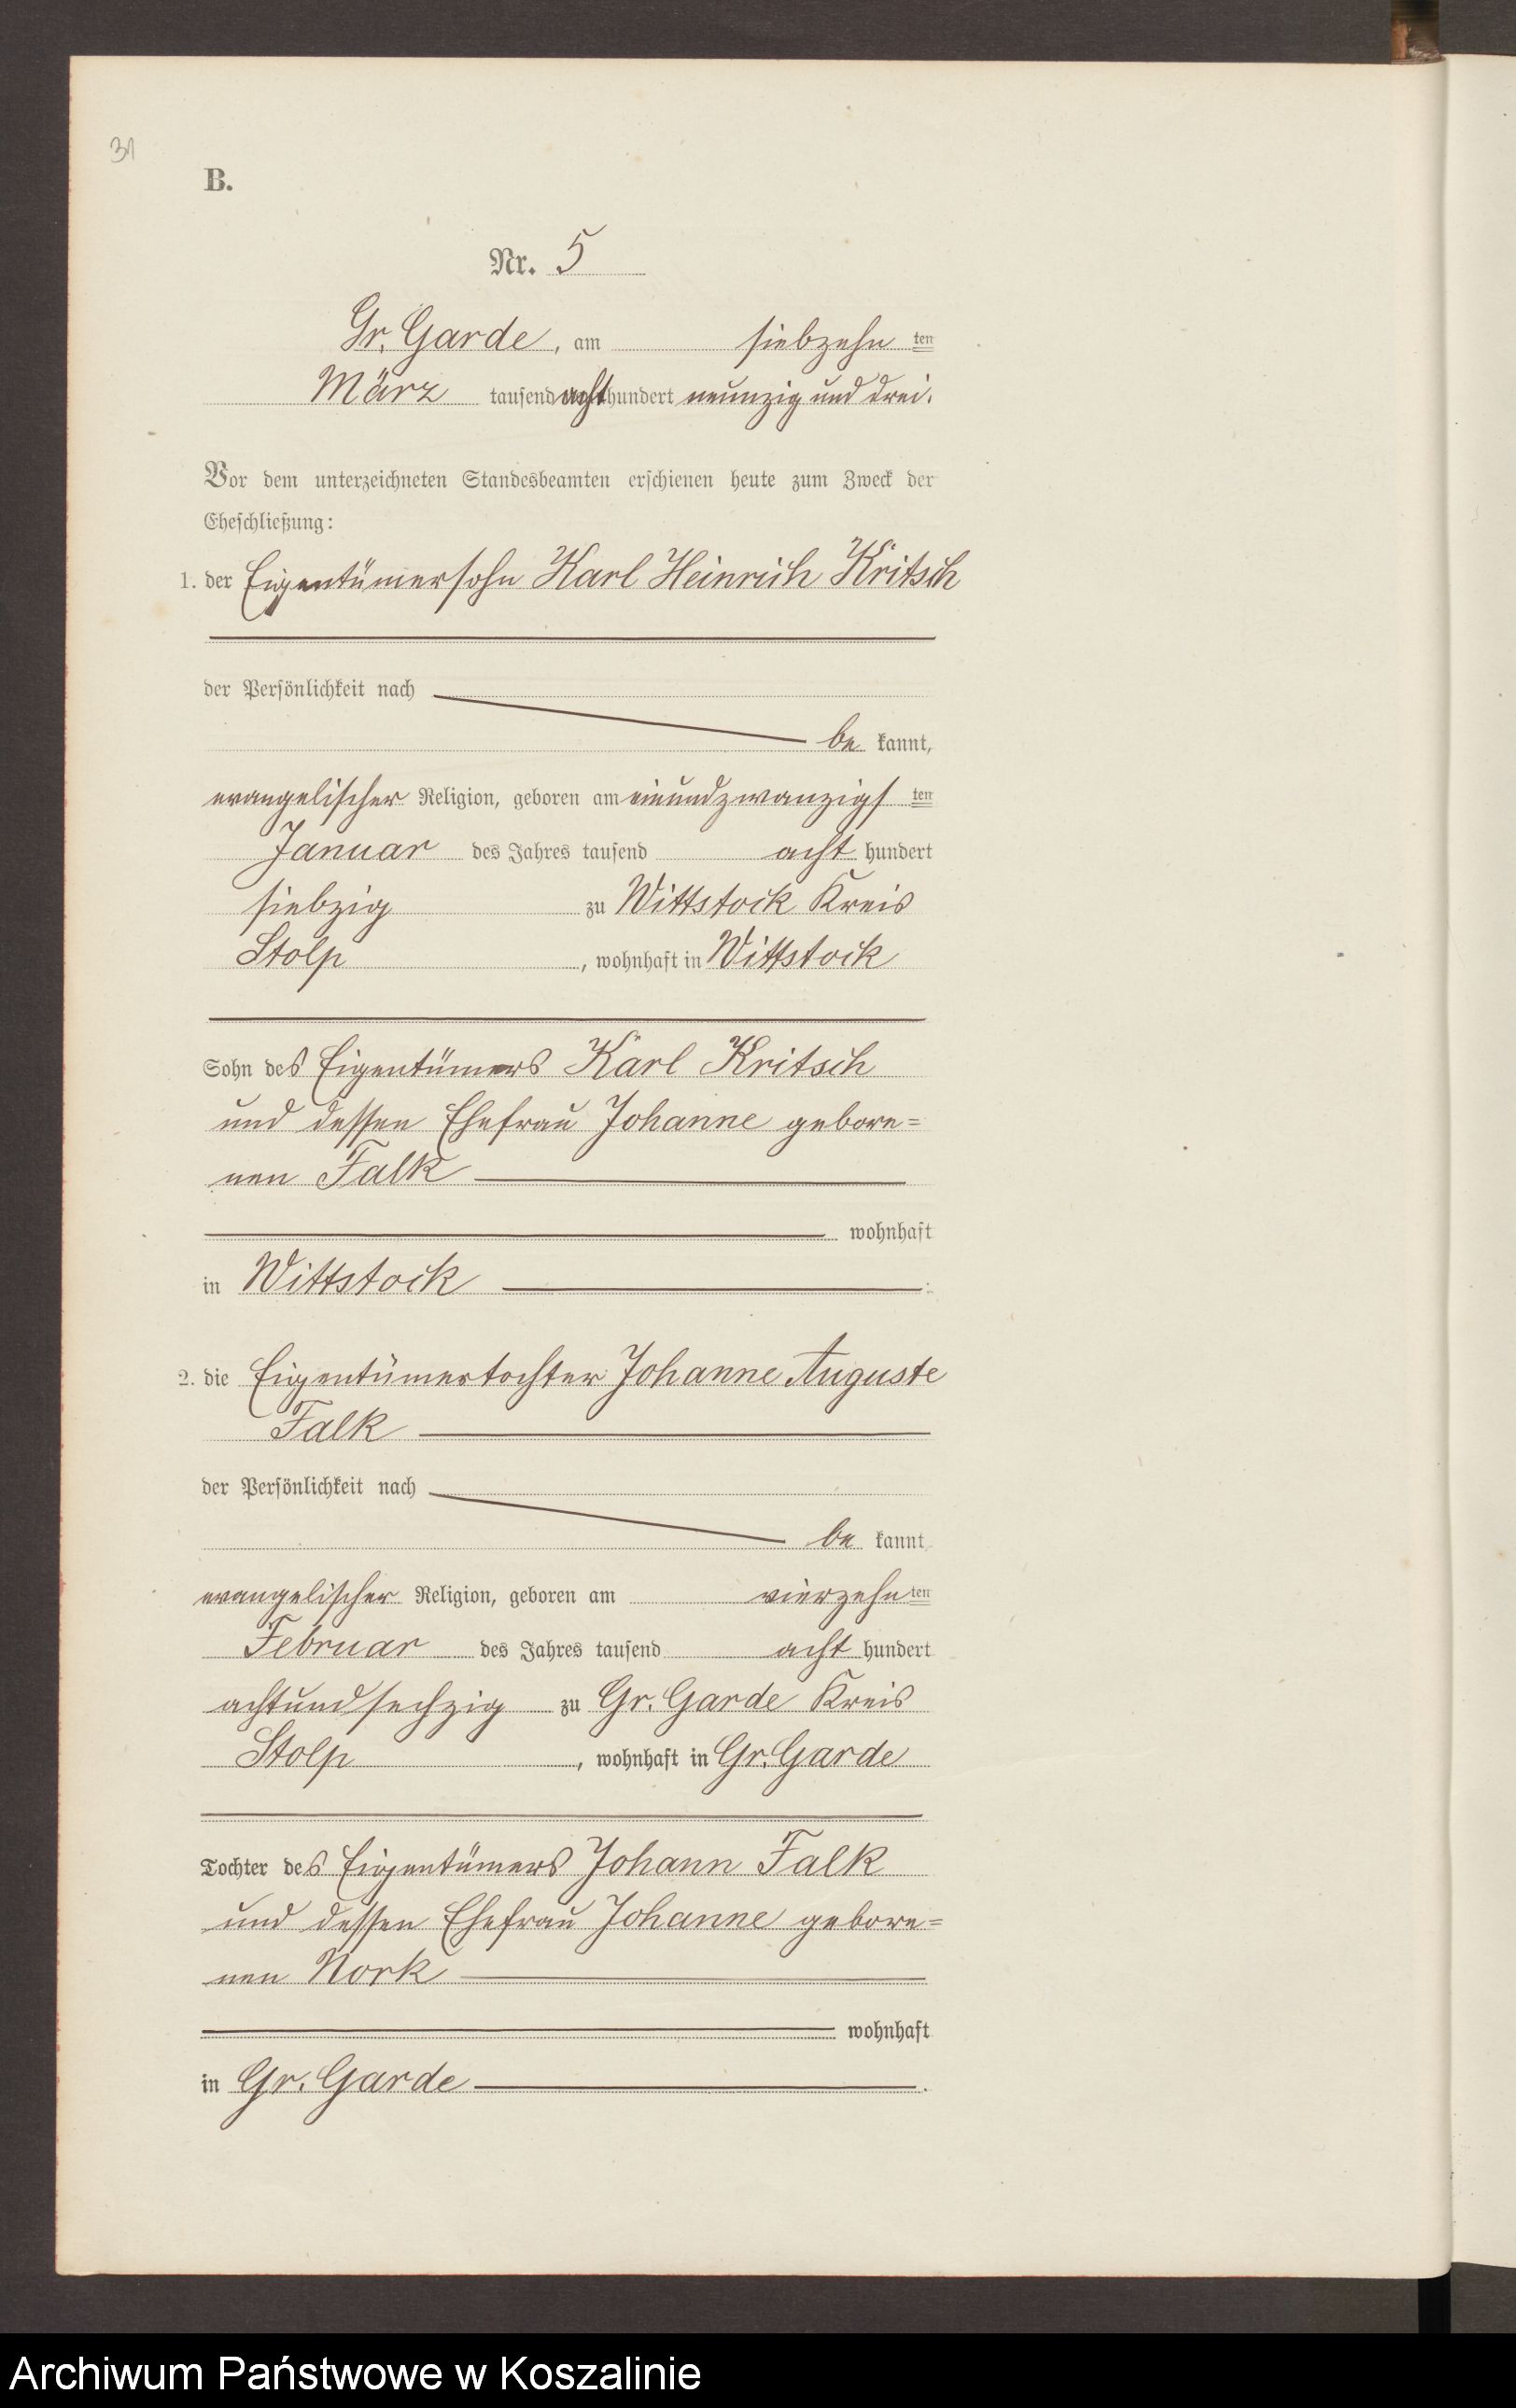 31
B.
Nr. 5
Gr. Garde, am siebzehn ten
März tausend acht hundert neunzig und drei.
Vor dem unterzeichneten Standesbeamten erschienen heute zum Zweck der
Eheschließung:
1. der Eigentümersohn Karl Heinrich Kritsch
der Persönlichkeit nach
be kannt,
evangelischer Religion, geboren am einundzwanzigs ten
Januar des Jahres tausend acht hundert
siebzig zu Wittstock Kreis
Stolp, wohnhaft in Wittstock
Sohn des Eigentümers Karl Kritsch
und dessen Ehefrau Johanne gebore=
nen Falk
wohnhaft
in Wittstock :
2. die Eigentümertochter Johanne Auguste
Falk
der Persönlichkeit nach
be kannt
evangelischer Religion, geboren am vierzehn ten
Februar des Jahres tausend acht hundert
achtundsechzig zu Gr. Garde Kreis
Stolp, wohnhaft in Gr. Garde
Tochter des Eigentümers Johann Falk
und dessen Ehefrau Johanne gebore=
nen Nork
wohnhaft
in Gr. Garde .
Archiwum Państwowe w Koszalinie